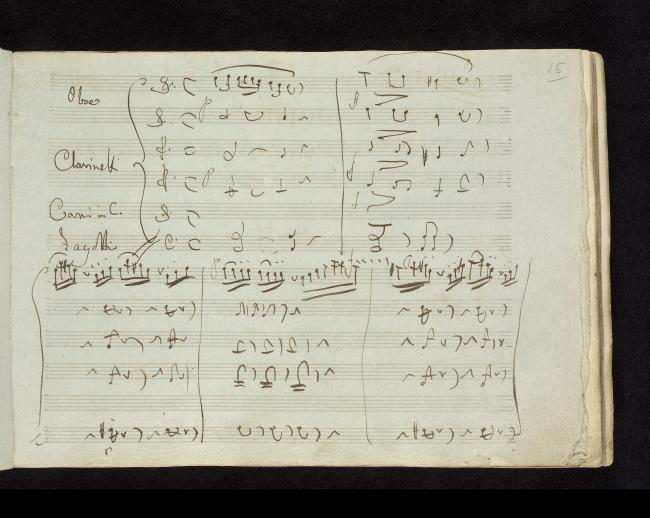 15
Oboe
Clarinetti
Corni in C.
Fagotti